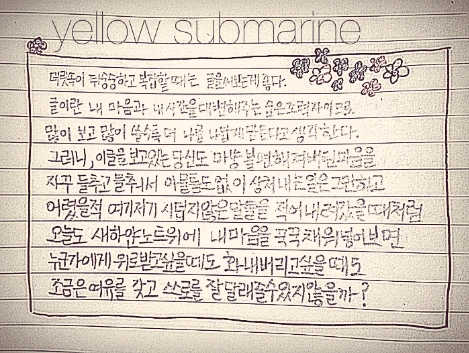 yellow submarine
머릿속이 뒤숭숭하고 복잡할 때는 글을써보는게 좋다.
글이란 내 마음과 내 시간을 대변해주는 숨은조력자이므로
많이 보고 많이 쓸수록 더 나를 나답게 만든다고 생각한다.
그러니, 이글을 보고있는 당신도 마냥 불편해져버린 마음을
자꾸 들추고 들추니서 아물틈도 없이 상처내는일은 그만하고
어렸을적 여기저기 시덥지않은 말들을 적어 내려갔을 때처럼
오늘도 새하얀노트위에 내마음을 꾹꾹채워넣어보면
누군가에게 위로받고싶을때도 화내버리고싶을 때도
조금은 여유를 갖고 스스로를 잘 달래줄수있지않을까?